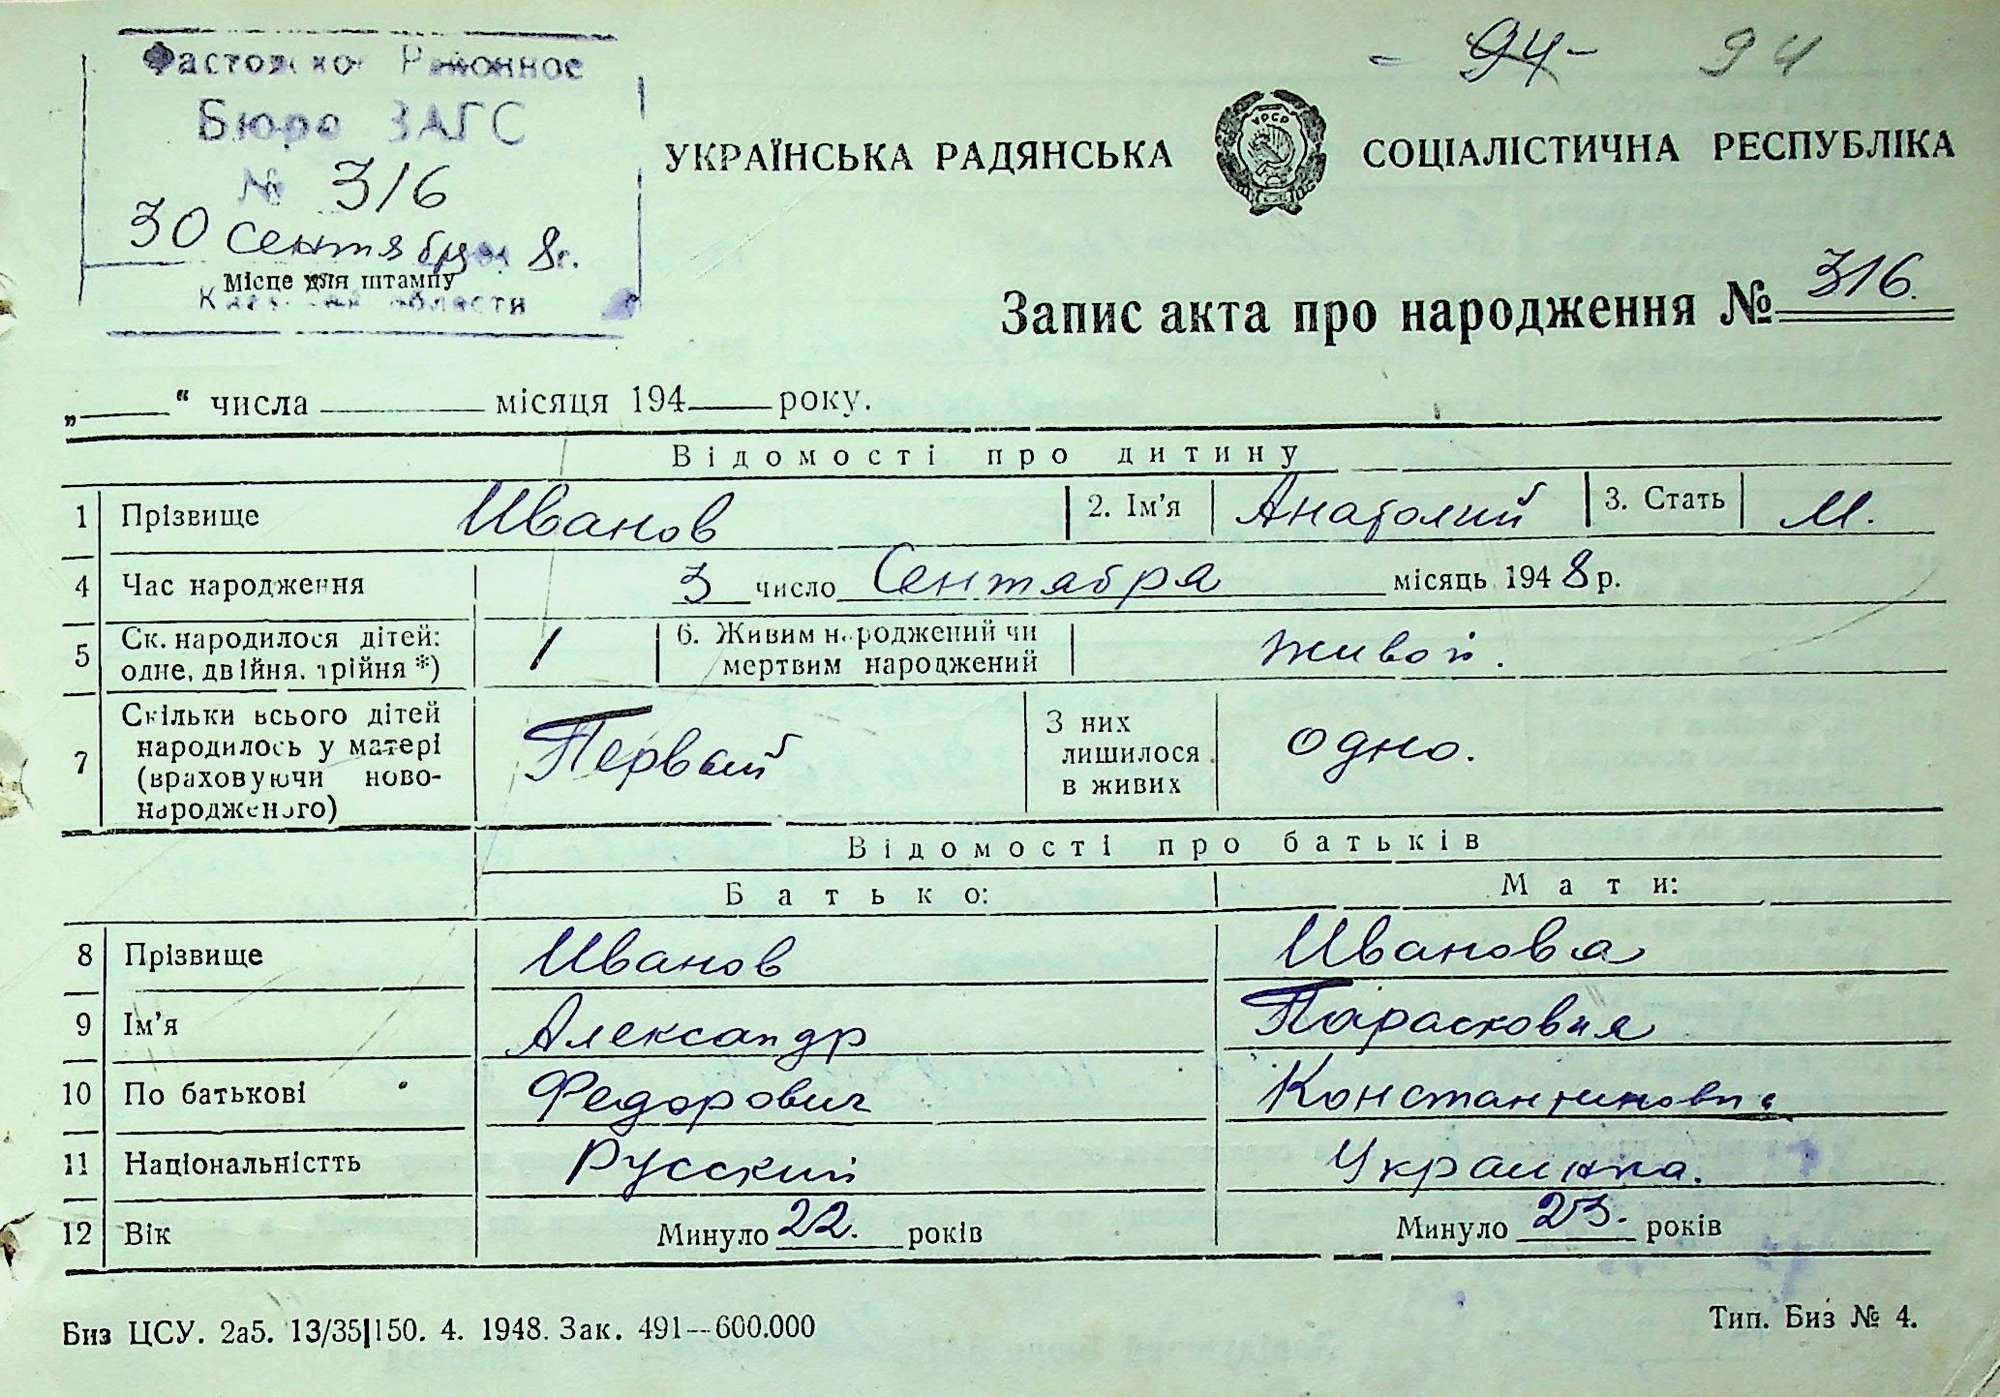 - 94 -
94
Фастовское Районное
Бюро ЗАГС
№ 316
30 Сентября 8г.
Місце для штампу
Киевской области
УКРАЇНСЬКА РАДЯНСЬКА СОЦІАЛІСТИЧНА РЕСПУБЛІКА
УРСР
Запис акта про народження № 316.
„____“ числа ________ місяця 194____року.
Відомості про дитину
1 Прізвище Иванов 2. Ім’я Анатолий 3. Стать М.
4 Час народження 3 число Сентября місяць 1948 р.
5 Ск. народилося дітей: одне, двійня, трійня *) 1 6. Живим народжений чи мертвим народжений живой.
7 Скільки всього дітей народилось у матері (враховуючи ново-народженого) Первый З них лишилося в живих одно.
Відомості про батьків
Батько: Мати:
8 Прізвище Иванов Иванова
9 Ім’я Александр Парасковия
10 По батькові Федорович Константиновна
11 Національністть Русский Украинка.
12 Вік Минуло 22. років Минуло 23. років
Биз ЦСУ. 2а5. 13/35|150. 4. 1948. Зак. 491—600.000
Тип. Биз № 4.